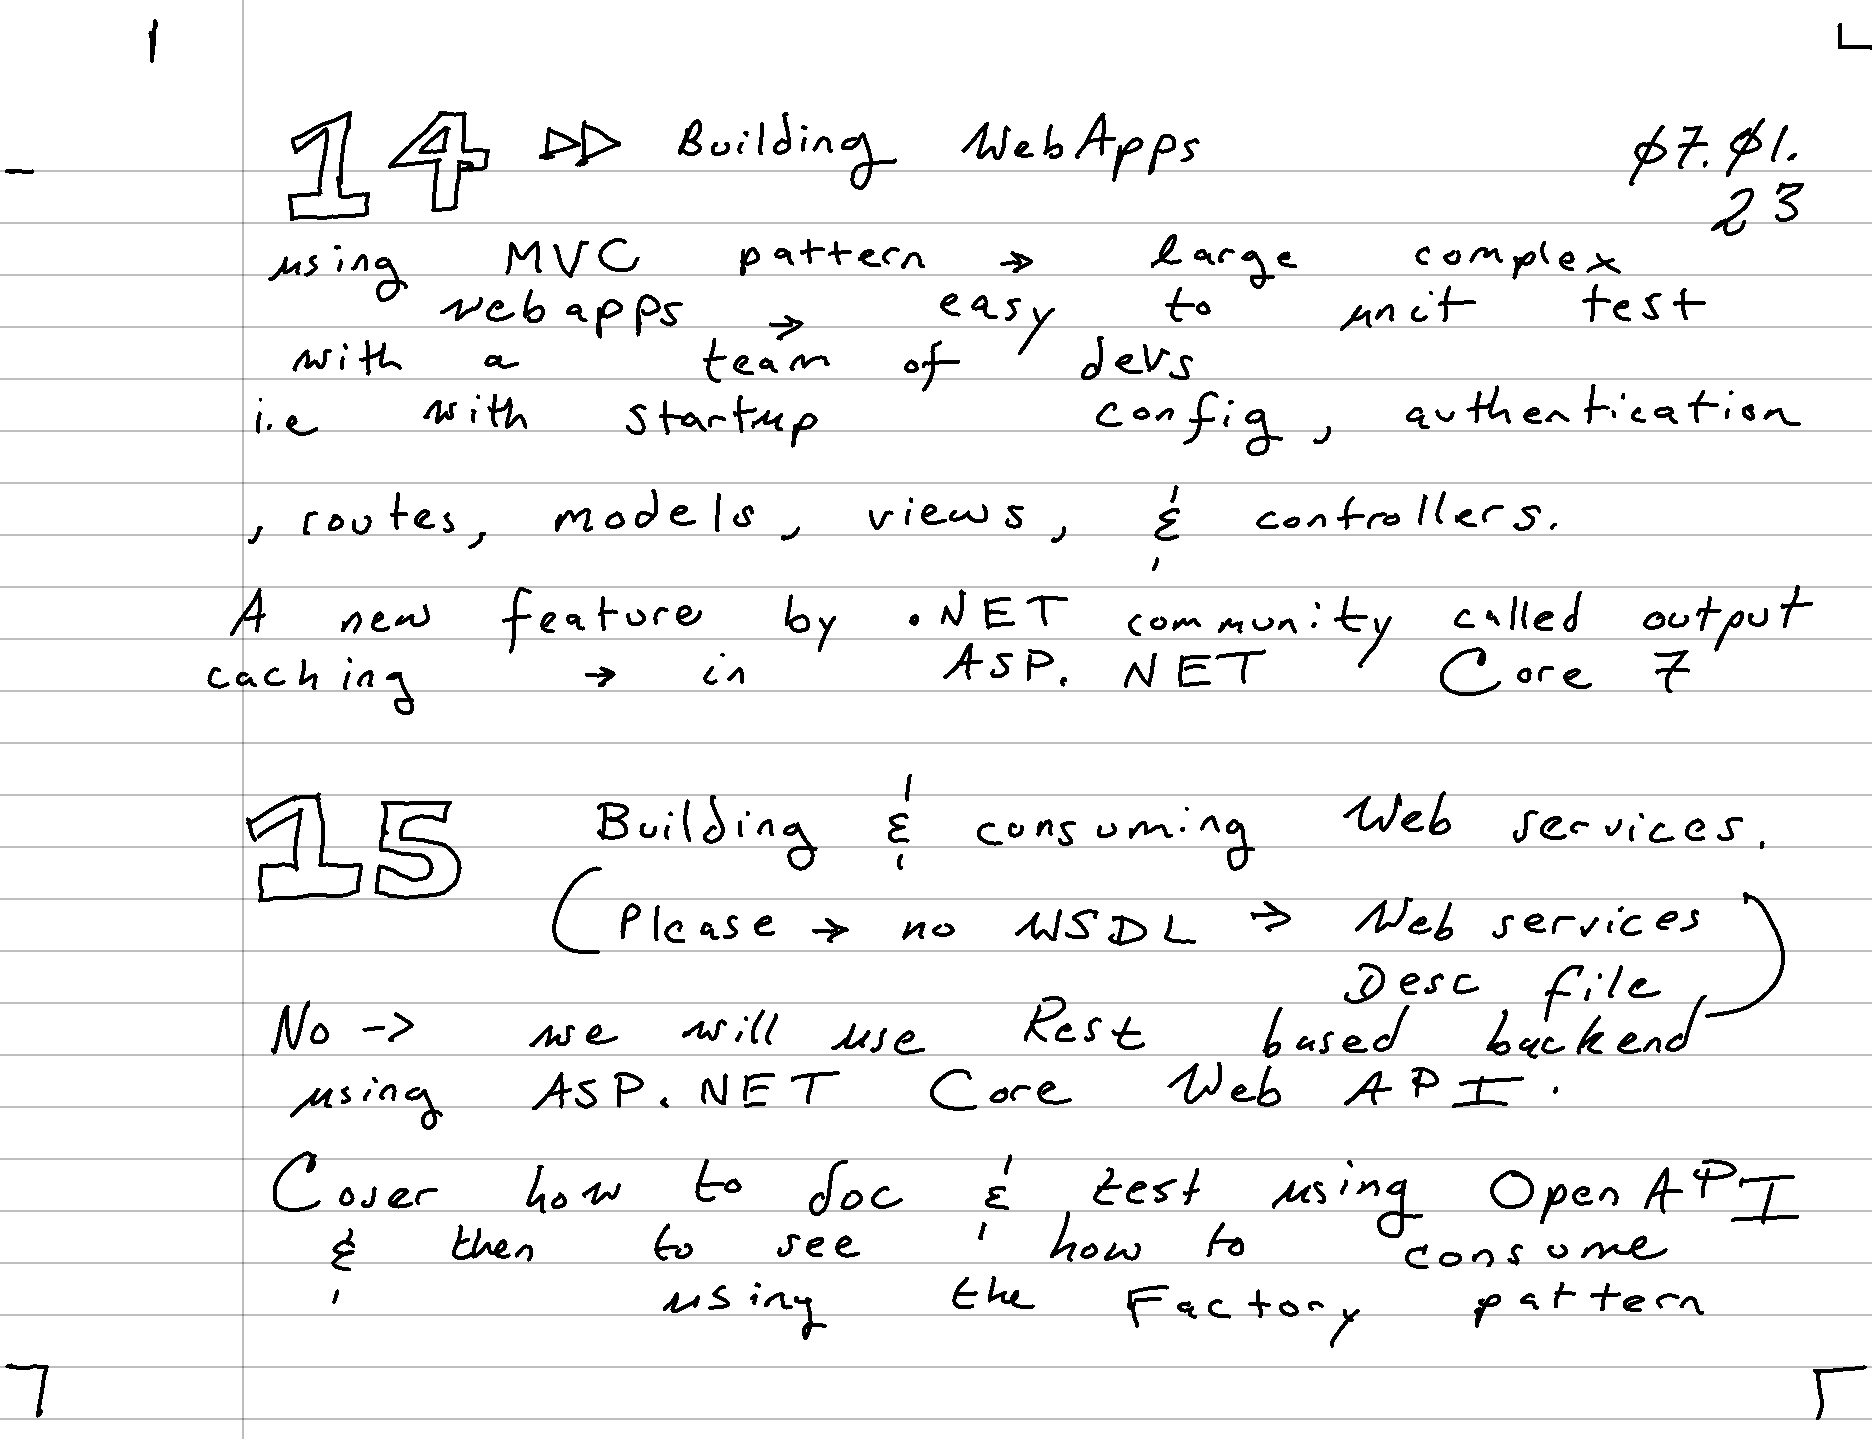 14 ▷▷ Building WebApps ø7.ø1.
23
using MVC pattern → large complex
webapps → easy to unit test
with a team of devs
i.e with startup config, authentication
, routes, models, views, & controllers.
A new feature by .NET community called output
caching → in ASP.NET Core 7
15 Building & consuming Web services.
(Please → no WSDL → Web services
Desc file)
No -> we will use Rest based backend
using ASP.NET Core Web API.
Cover how to doc & test using OpenAPI
& then to see how to consume
using the Factory pattern